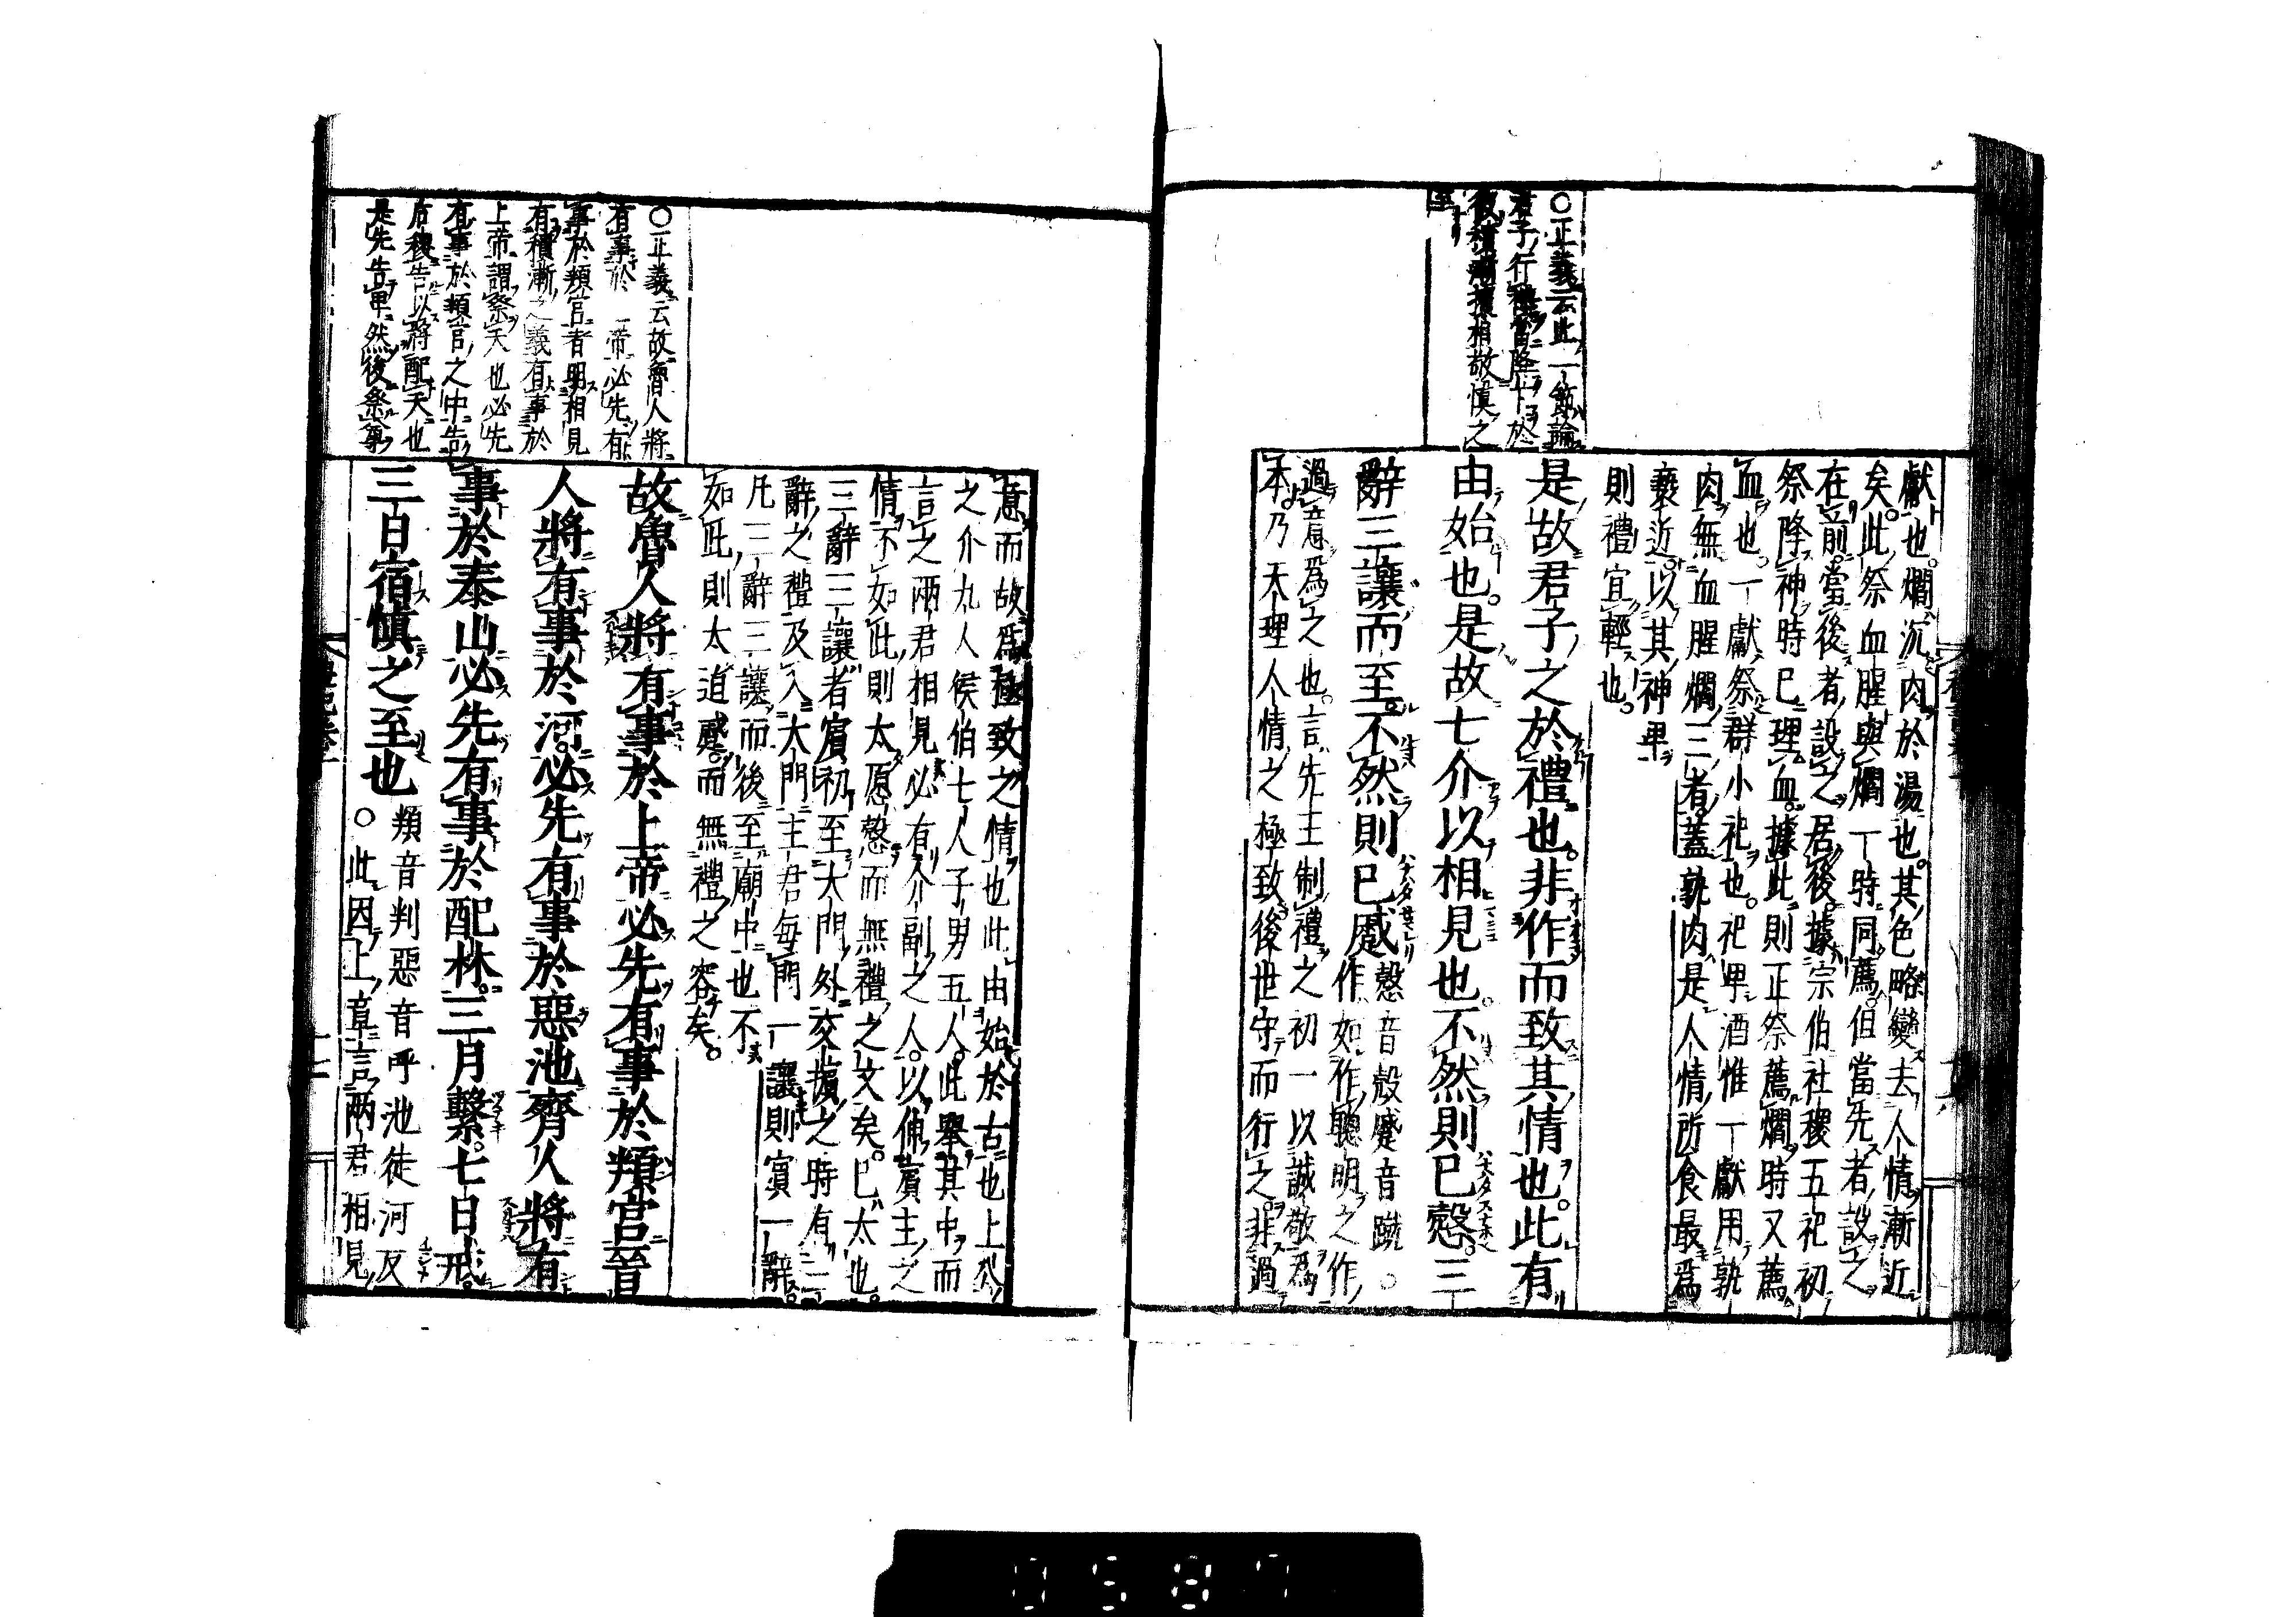 獻也。爓沉肉於湯也。其色略變去人情漸近
矣。此祭血腥與爓一時同薦。但當先者設之
在前。當後者設之居後。據宗伯社稷五祀初
祭降神時已理血。據此則正祭薦爓時又薦
血也。一獻祭群小祀也。祀卑酒惟一獻用孰
肉無血腥爓三者。蓋孰肉是人情所食最爲
褻近以其神卑
則禮宜輕也。
○正義云此一節論
君子行禮當降下於
彼積漸擯相故慎之
至
是故君子之於禮也。非作而致其情也。此有
由始也。是故七介以相見也。不然則已愨。三
辭三讓而至。不然則已蹙
愨音殼蹙音蹴○
作如作聰明之作
過意爲之也。言先王制禮之初一以誠敬爲
本。乃天理人情之極致後世守而行之。非過
意而故爲極致之情也此由始於古也上公
之介九人侯伯七人子男五人。此舉其中而
言之兩君相見必有介副之人。以佴賓主之
情不如此則太愿愨而無禮之文矣。已太也。
三辭三讓者賓初至大門外交擯之時有三
辭之禮及入大門主君每門一讓則賓一辭。
凡三辭三讓而後至廟中也不
如此則太迫蹙。而無禮之容矣。
○正義云故魯人將
有事於上帝必先有
事於頖宮者明相見
有積漸之義有事於
上帝謂祭天也必先
有事於頖宮之中告
后稷告以將配天也
是先告卑然後祭尊
故魯人將有事於上帝必先有事於頖宮晉
人將有事於河。必先有事於惡池齊人將有
事於泰山必先有事於配林。三月繫。七日戒。
三日宿慎之至也
頖音判惡音呼池徒河反
○此因上章言兩君相見